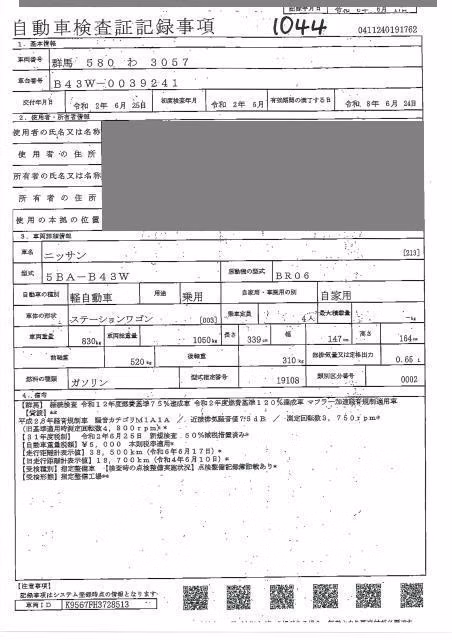 自動車検査証記録事項
1044
0411240191762
1．基本情報
車両番号 群馬 580 わ 3057
車台番号 B43W-0039241
交付年月日 令和 2年 6月 25日 初度検査年月 令和 2年 6月 有効期間の満了する日 令和 8年 6月 24日
2．使用者・所有者情報
使用者の氏名又は名称
使用者の住所
所有者の氏名又は名称
所有者の住所
使用の本拠の位置
3．車両詳細情報
車名 ニッサン [213]
型式 5BA-B43W 原動機の型式 BR06
自動車の種別 軽自動車 用途 乗用 自家用・事業用の別 自家用
車体の形状 ステーションワゴン [003] 乗車定員 4人 最大積載量 -kg
車両重量 830kg 車両総重量 1050kg 長さ 339cm 幅 147cm 高さ 164cm
前軸重 520kg 後軸重 310kg 総排気量又は定格出力 0.65 L
燃料の種類 ガソリン 型式指定番号 19108 類別区分番号 0002
4．備考
【群馬】 継続検査 令和12年度燃費基準75%達成車 令和2年度燃費基準120%達成車 マフラー加速騒音規制適用車
平成28年騒音規制車 騒音カテゴリM1A1A ／ 近接排気騒音値75dB ／ 測定回転数3，750rpm*
(旧基準適用時測定回転数4，800rpm)*
【31年度税制】 令和2年6月25日 新規検査．50%減税措置済み*
【自動車重量税額】¥5，000 本則税率適用*
【走行距離計表示値】38，500km（令和6年6月17日）*
【旧走行距離計表示値】18，700km（令和4年6月10日）*
【受検種別】指定整備車 【検査時の点検整備実施状況】点検整備記録簿記載あり*
【受検形態】指定整備工場*
【注意事項】
記録事項はシステム登録時点の情報となります
車両ID K9567PH3728513